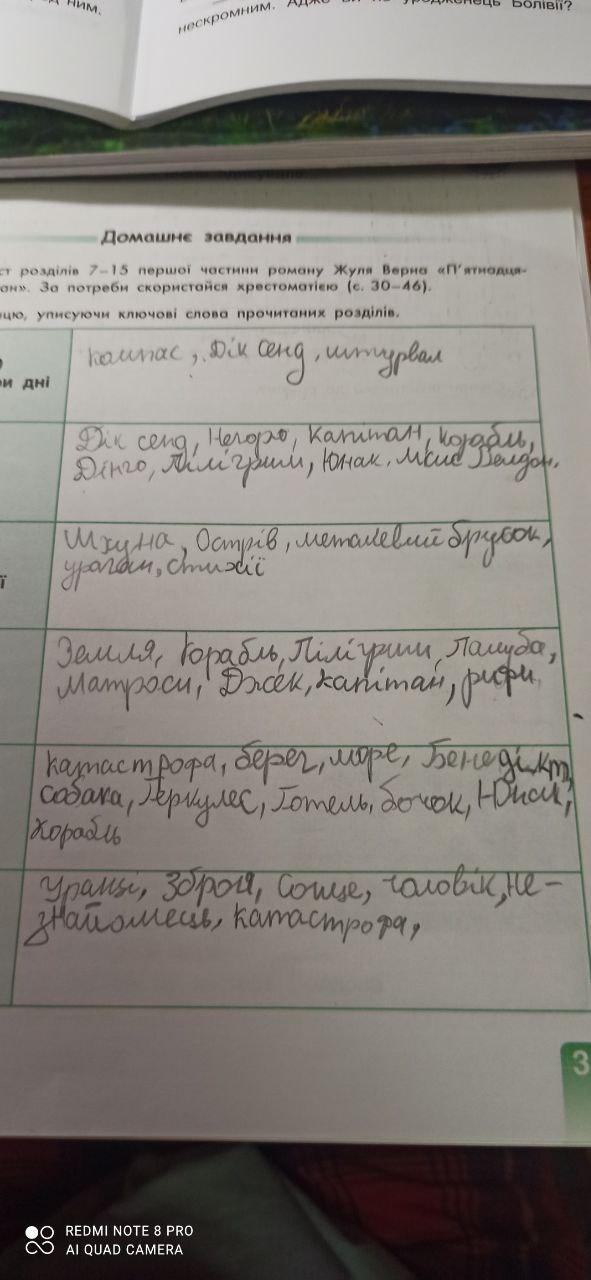 ним.
нескромним. Адже ви не уродженець Болівії?
Домашнє завдання
ст розділів 7–15 першої частини роману Жуля Верна «П'ятнадця-
ан». За потреби скористайся хрестоматією (с. 30–46).
цю, уписуючи ключові слова прочитаних розділів.
компас, Дік сенд, штурвал
и дні
Дік сенд, Негоро, Капітан, корабль,
Дінго, Пілігрим, Юнак, місис Велдон.
Шхуна, Острів, металевий брусок,
ураган, стихії
ї
Земля, Корабль, Пілігрим, Палуба,
Матроси, Джек, капітан, рифи
катастрофа, берег, море, Бенедікт,
собака, Геркулес, Готель, бочок, Юнак,
Корабль
Уранці, Зброя, Сонце, чоловік, не-
знайомець, катастрофа,
3
REDMI NOTE 8 PRO
AI QUAD CAMERA